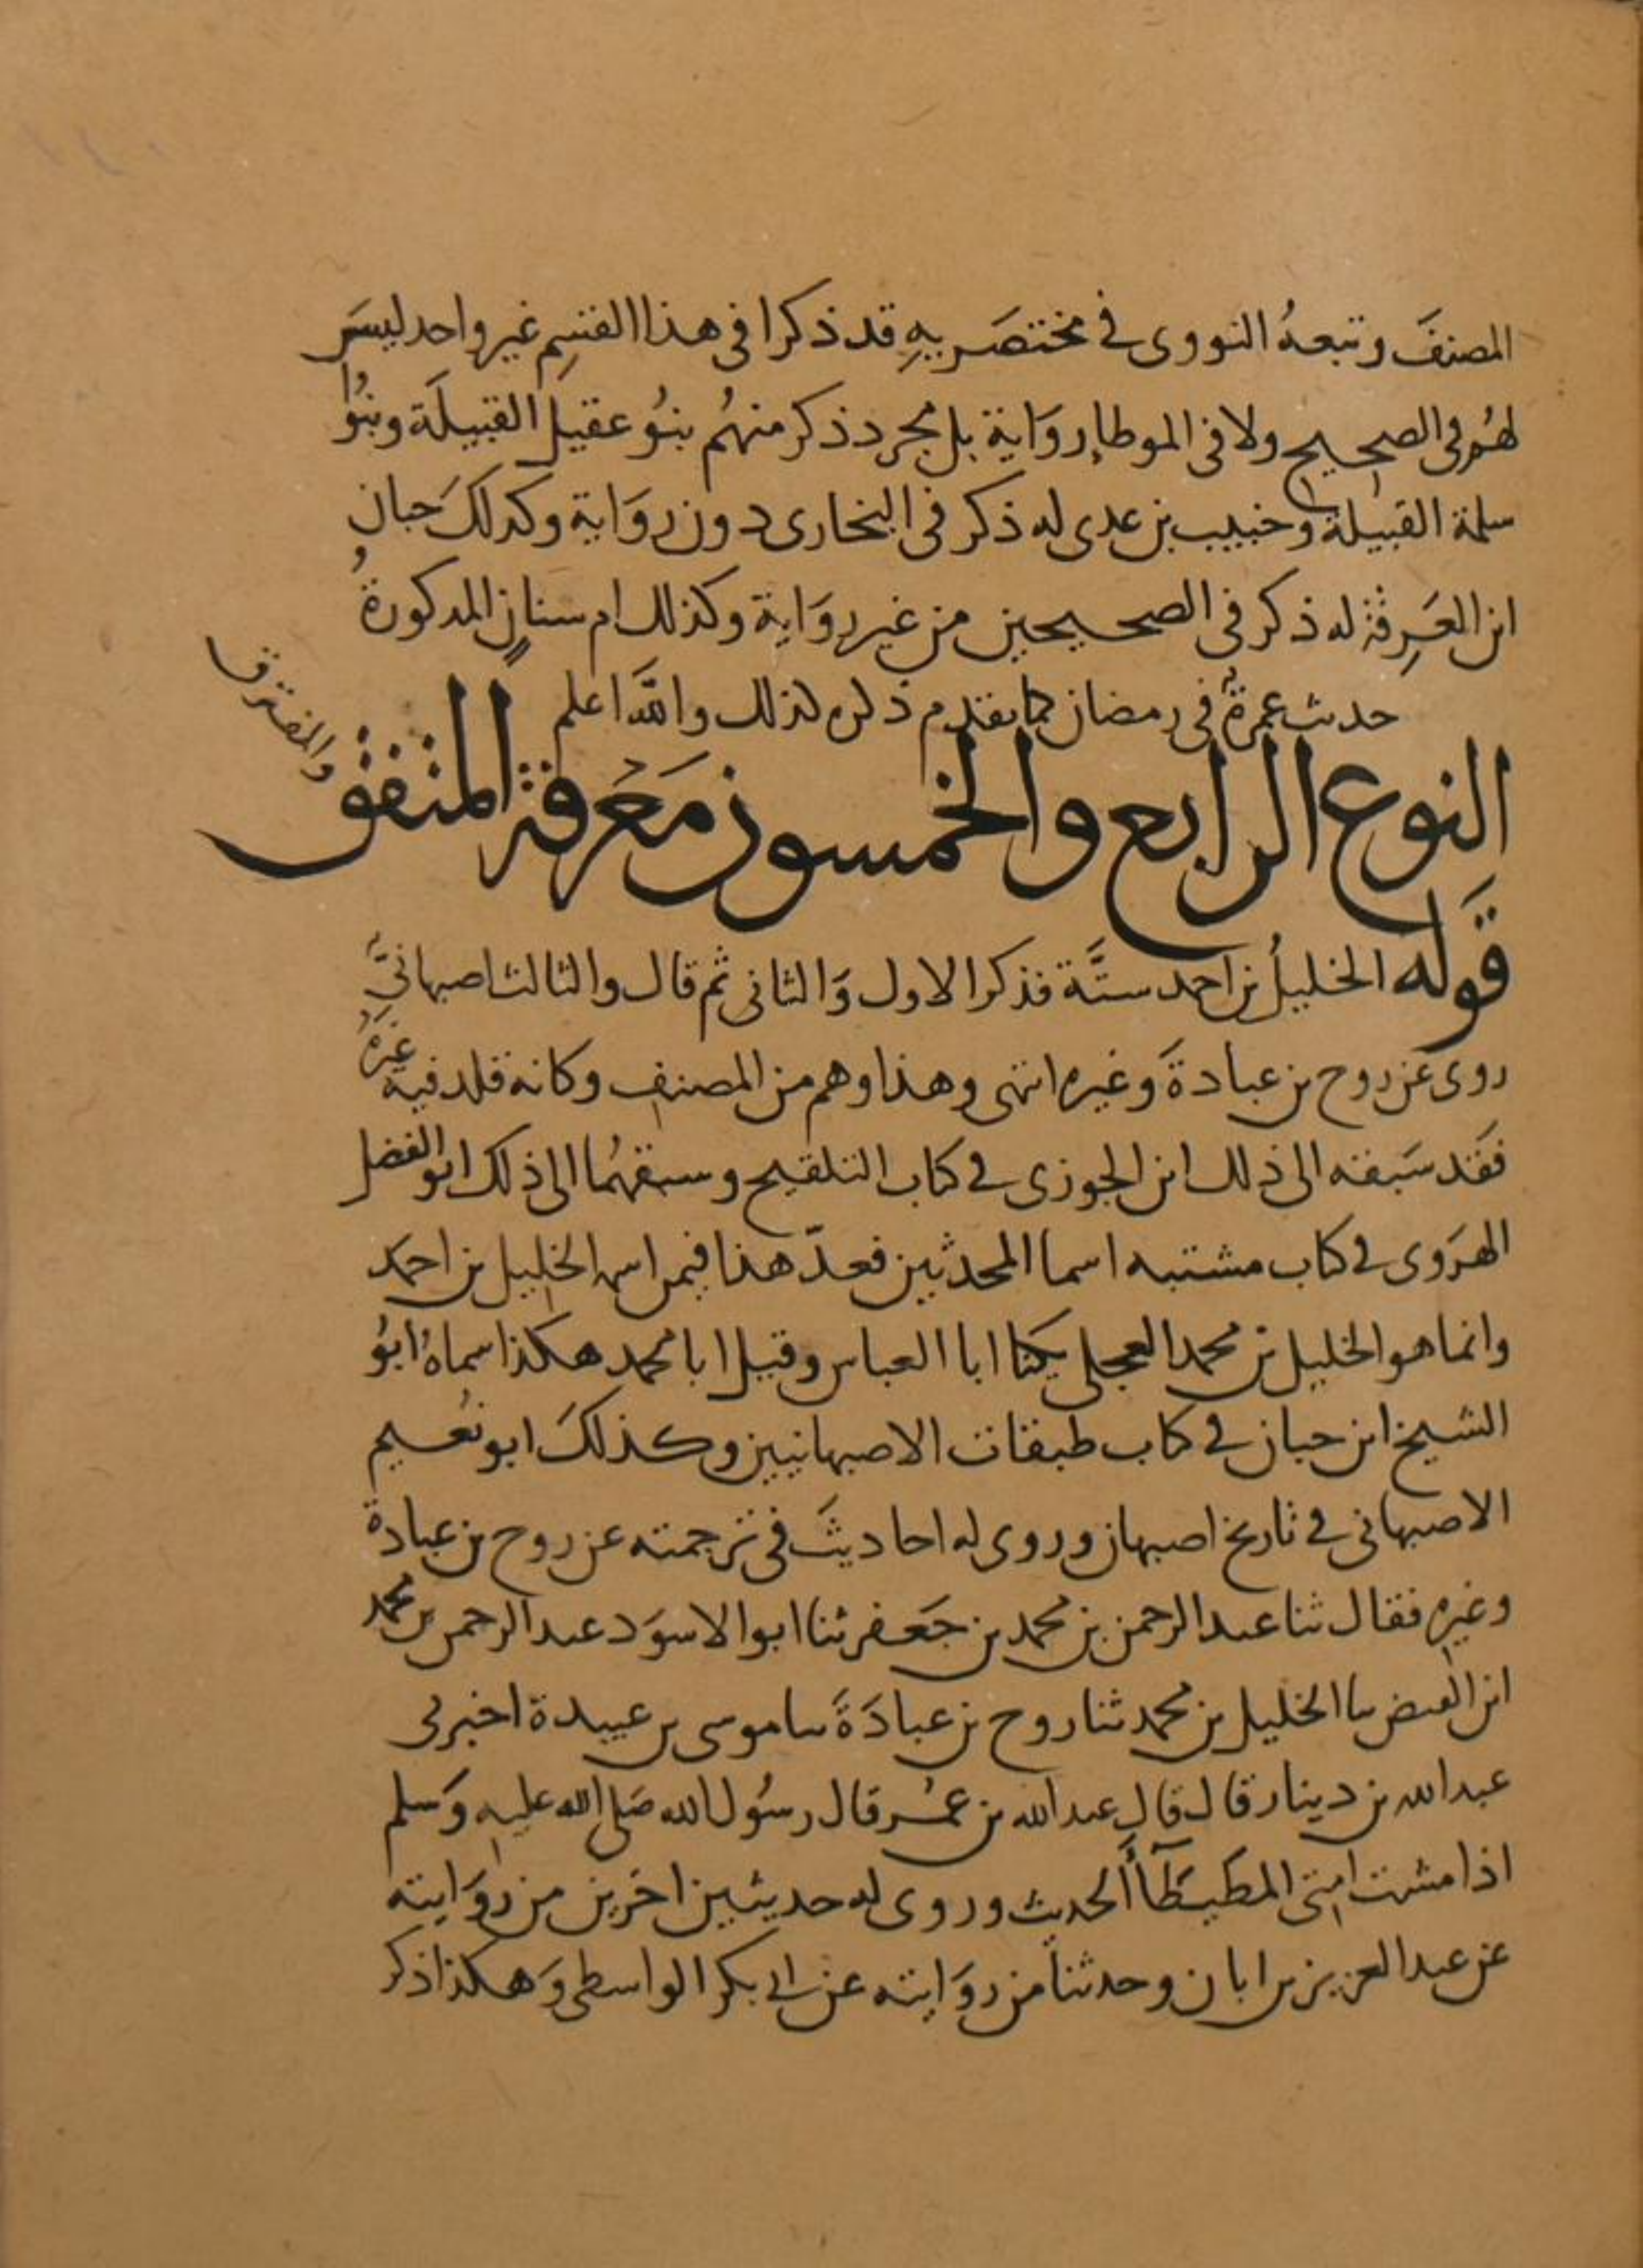 المصنفَ وتبعهُ النووى فى مختصَريهِ قد ذكرا فى هذا القسِم غير واحد ليسَ
لهُم فى الصحيح ولا فى الموطا روَاية بل مجرد ذكر منهُم بنوُ عقيل القبيلَة وبنوُا
سلمة القبيلة وخبيب بن عدى له ذكر فى البخارى دون روَاية وكذلكَ حبان
ابن العَرِقة له ذكر فى الصحيحين من غير روَاية وكذلك ام سنانٍ المذكورةُ
حديث عمرةٌ فى رمضان كما تقدم ذكره كذلك والله اعلم
النوع الرابع والخمسون مَعْرفة المتفق
والمفترق
قَوله الخليلُ بن احمد ستَّة فذكر الاول وَالثانى ثم قال والثالث اصبهانىٌّ
روى عن روح بن عبادةَ وغيره انتهى وهذا وهم من المصنف وكانه قلد فيه غيرهُ
فقَد سَبقه الى ذلك ابن الجوزى فى كتاب التلقيح وسبقهُما الى ذلك ابو الفضل
الهرَوى فى كتاب مشتبه اسما المحدثين فعدّ هذا فيمن اسمه الخليل بن احمد
وانما هو الخليل بن محمد العجلى يكنا ابا العباس وقيل ابا محمد هكذا سماهُ ابوُ
الشيخ ابن حبان فى كتاب طبقات الاصبهانيين وكذلكَ ابو نعُيم
الاصبهانى فى تاريخ اصبهان وروى له احاديثَ فى ترجمته عن روح بن عبادة
وغيره فقال ثنا عبد الرحمن بن محمد بن جَعفر ثنا ابو الاسوَد عبد الرحمن بن محمد
ابن الفيض ثنا الخليل بن محمد ثنا روح بن عبادَةَ ثنا موسى بن عبيدة اخبرنى
عبد الله بن دينار قال قال عبد الله بن عمُر قال رسُول الله صَلى الله عليه وَسلم
اذا مشت امتى المطَيطَآأَ الحديث وروى له حديثين اخرَين من روَايته
عن عبد العزيز بن ابان وحدثنا من روَايته عن ابى بكر الواسطى وَهكذا ذكر